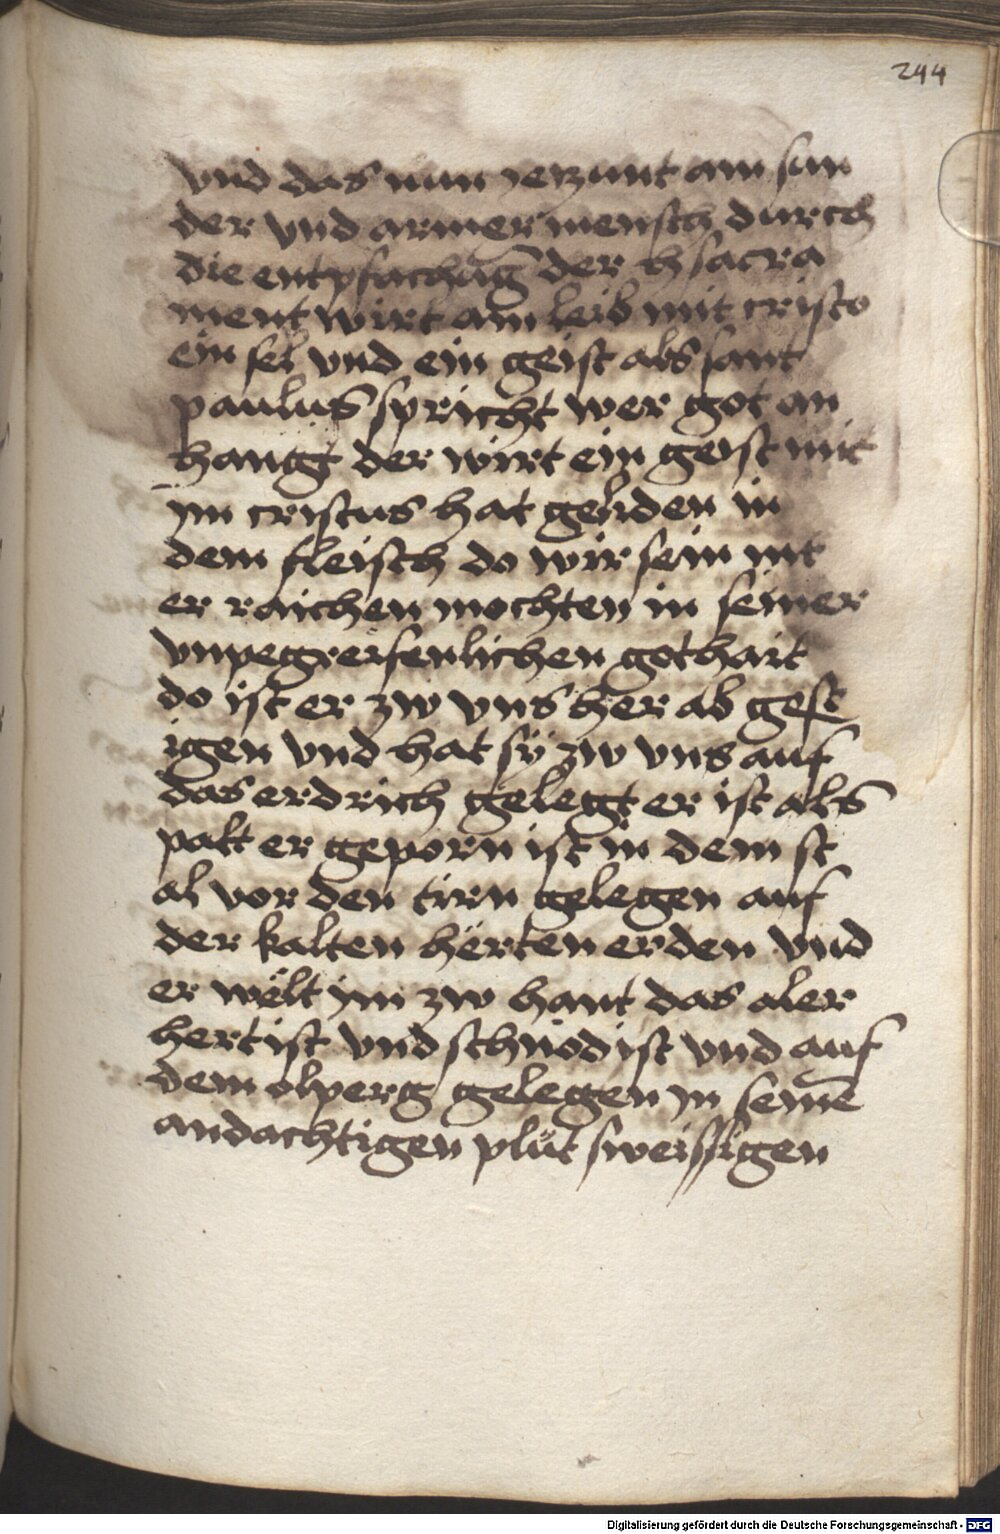 244
vnd das nun yetzunt ain sun
der vnd armer mensch durch
die entpfachūg der h sacra
ment wirt ain leib mit cristo
ein sel vnd ein geist als sant
paulus spricht wer got an
hangt der wirt ein geist mit
ym cristus hat geliden in
dem fleisch do wir sein nit
er raichen mochten in seiner
vnpegreifenlichen gothait
do ist er zw vns her ab gest
igen vnd hat sy zw vns auf
das erdrich gelegt er ist als
palt er geporn ist in dem st
al vor den tirn gelegen auf
der kalten herten erden vnd
er welt im zw hant das aler
hertist vnd schnodist vnd auf
dem olperg gelegen in seinē
andachtigen plut sweissigen
Digitalisierung gefördert durch die Deutsche Forschungsgemeinschaft - DFG